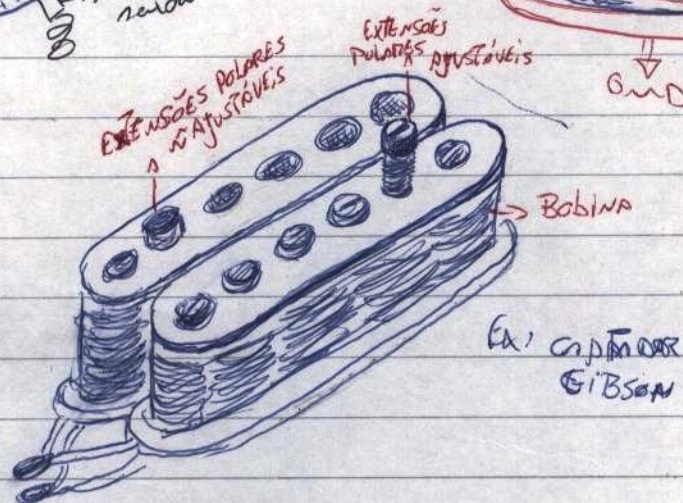 EXTENSÕES POLARES
Ñ AJUSTÁVEIS
EXTENSÕES
POLARES AJUSTÁVEIS
GND
BOBINA
EX: CAPTADOR
GIBSON